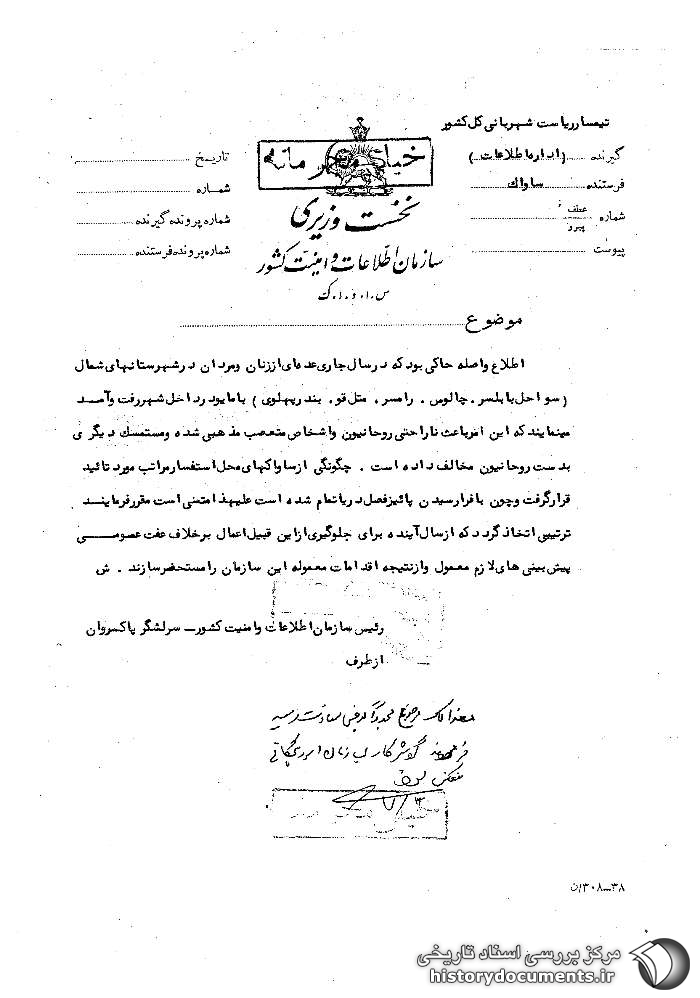 تیمسار ریاست شهربانی کل کشور
گیرنده (اداره اطلاعات)
فرستنده ساواک
شماره عطف پیرو
پیوست
خیلی محرمانه
نخست وزیری
سازمان اطلاعات و امنیت کشور
س.ا.و.ا.ک
تاریخ
شماره
شماره پرونده گیرنده
شماره پرونده فرستنده
موضوع
اطلاع واصله حاکی بود که در سال جاری عده‌ای از زنان و مردان در شهرستانهای شمال
(سواحل بابلسر، چالوس، رامسر، متل قو، بندر پهلوی) با مایو در داخل شهر رفت و آمد
مینمایند که این امر باعث ناراحتی روحانیون و اشخاص متعصب مذهبی شده و مستمسک دیگری
بدست روحانیون مخالف داده است. چگونگی از ساواکهای محل استفسار مراتب مورد تائید
قرار گرفت و چون با فرا رسیدن پائیز فصل دریا تمام شده است علیهذا متمنی است مقرر فرمایند
ترتیبی اتخاذ گردد که از سال آینده برای جلوگیری از این قبیل اعمال برخلاف عفت عمومی
پیش بینی های لازم معمول و از نتیجه اقدامات معموله این سازمان را مستحضر سازند. ش
رئیس سازمان اطلاعات و امنیت کشور ـ سرلشگر پاکروان
از طرف
۳۸ـ۳۰۸/ن
مرکز بررسی اسناد تاریخی
historydocuments.ir